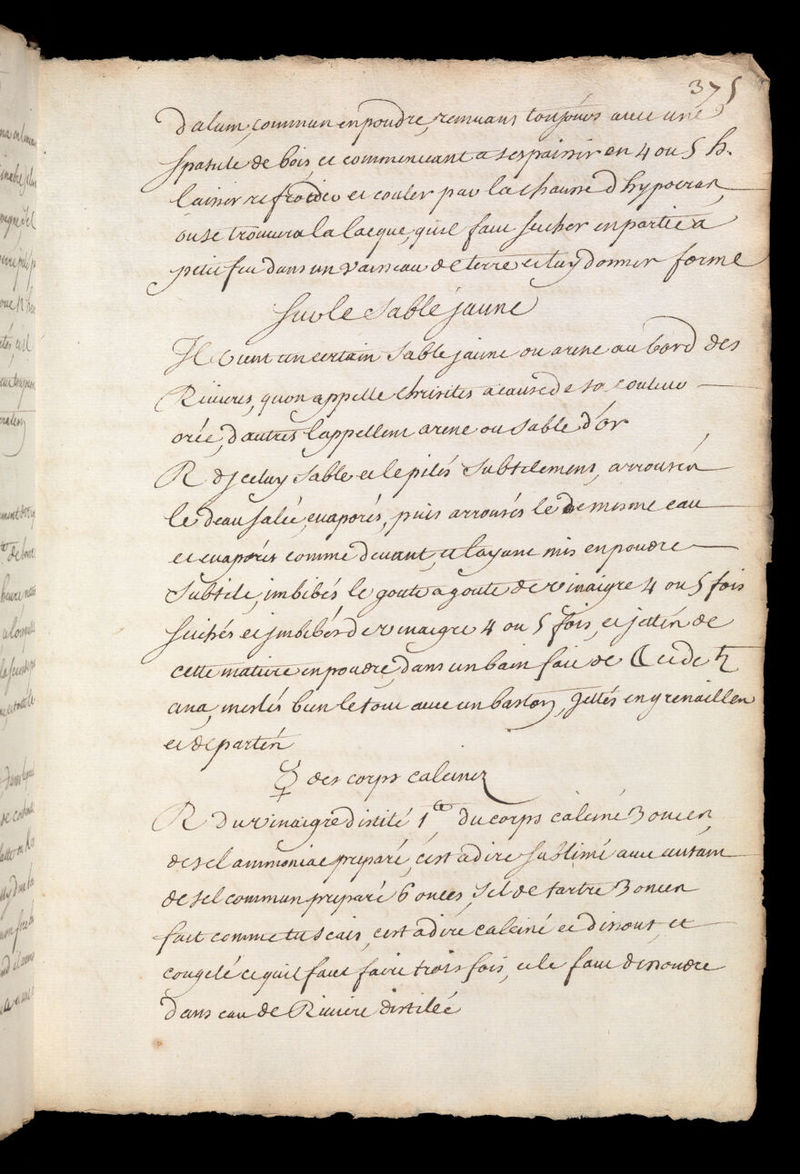 375
D'alum commun en poudre, remuant toujours avec une
spatule de bois, et commencant a sespaissir en 4 ou 5 h.
laisser refroidir et couler par la chausse d'hypocras,
ou se trouvera la lacque, quil faut secher en partie a
petit feu dans un vaisseau de terre et luy donner forme
sur le sable jaune
Il vient un certain sable jaune ou arene au bord des
Rivieres, quon appelle chrisites a cause de sa couleur
orée, d'autres lappellent arene ou sable d'or
R dJceluy sable et le pilés subtilement, arrousés
le deau salée, evaporés, puis arrousés le de mesme eau
et evaporés comme devant, et layant mis en poudre
subtile, imbibés le goute a goute de vinaigre 4 ou 5 fois
sechés et jmbibés de vinaigre 4 ou 5 fois, et jettés de
cette matiere en poudre, dans un bain fait de ☾ et de ♄
ana, meslés bien le tout avec un baston, Jettés en grenailles
et departés
☿ des corps calcinez
R Du vinaigre distilé 1 ℔ du corps calciné 3 onces
de sel ammoniac preparé, cest a dire sublimé avec autant
de sel commun preparé 6 onces, sel de tartre 3 onces
fait comme tu scais, cest a dire calciné et dissout, et
congelé ce quil faut faire trois fois, et le faut dissoudre
dans eau de Riviere distilée